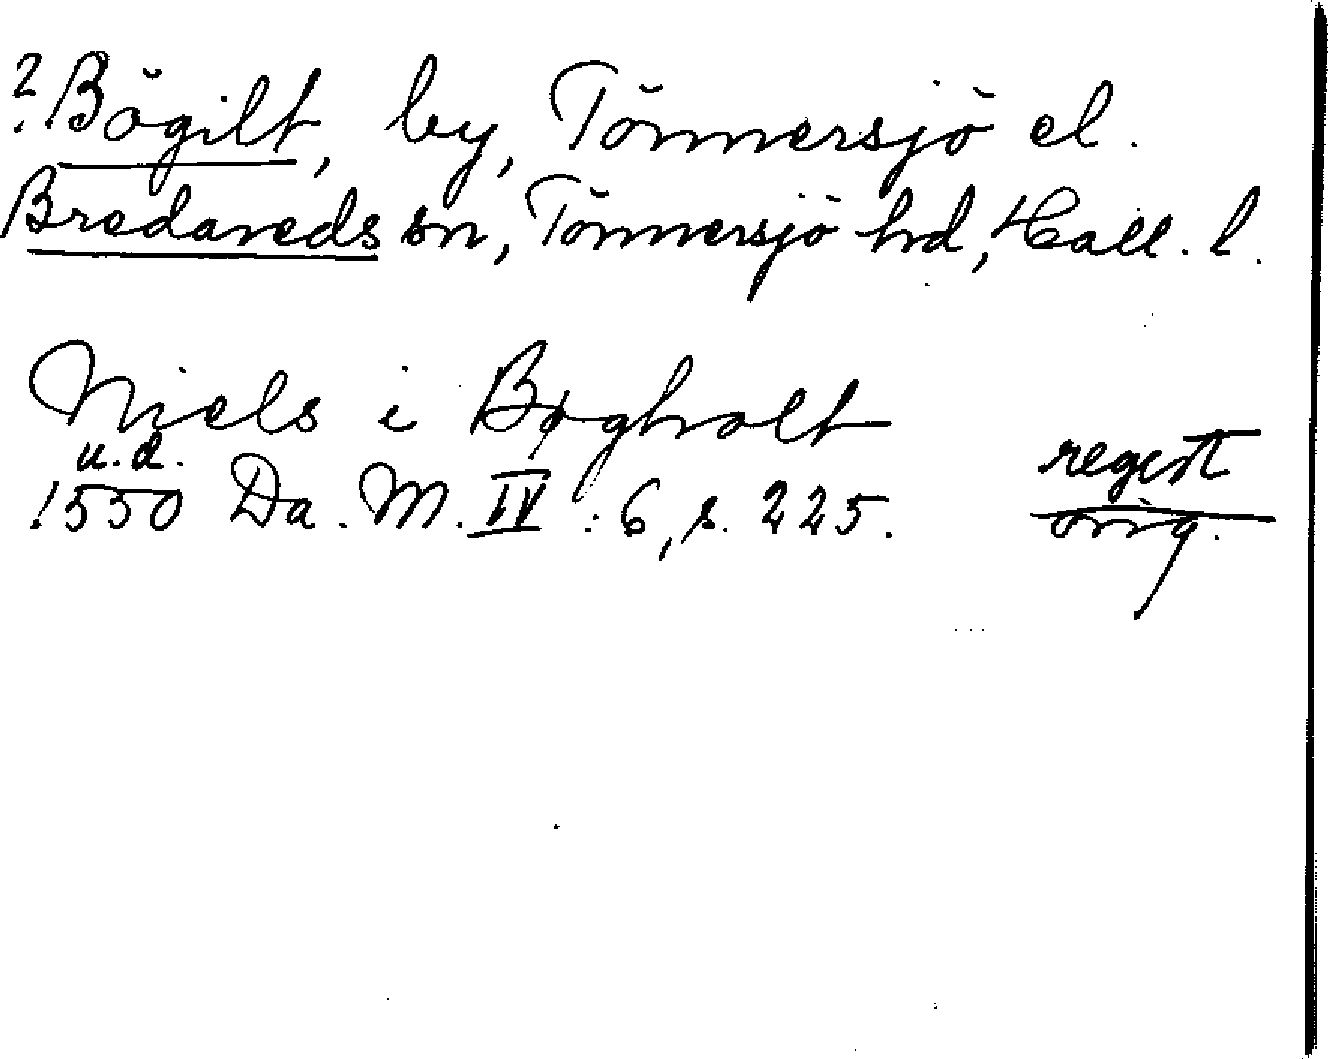 ? Bögilt, by, Tönnersjö el.
Bredareds sn, Tönnersjö hd, Hall. l.
Niels i Bøgholt
u.d.
1550 Da. M. IV : 6, s. 225.
regist
orig.